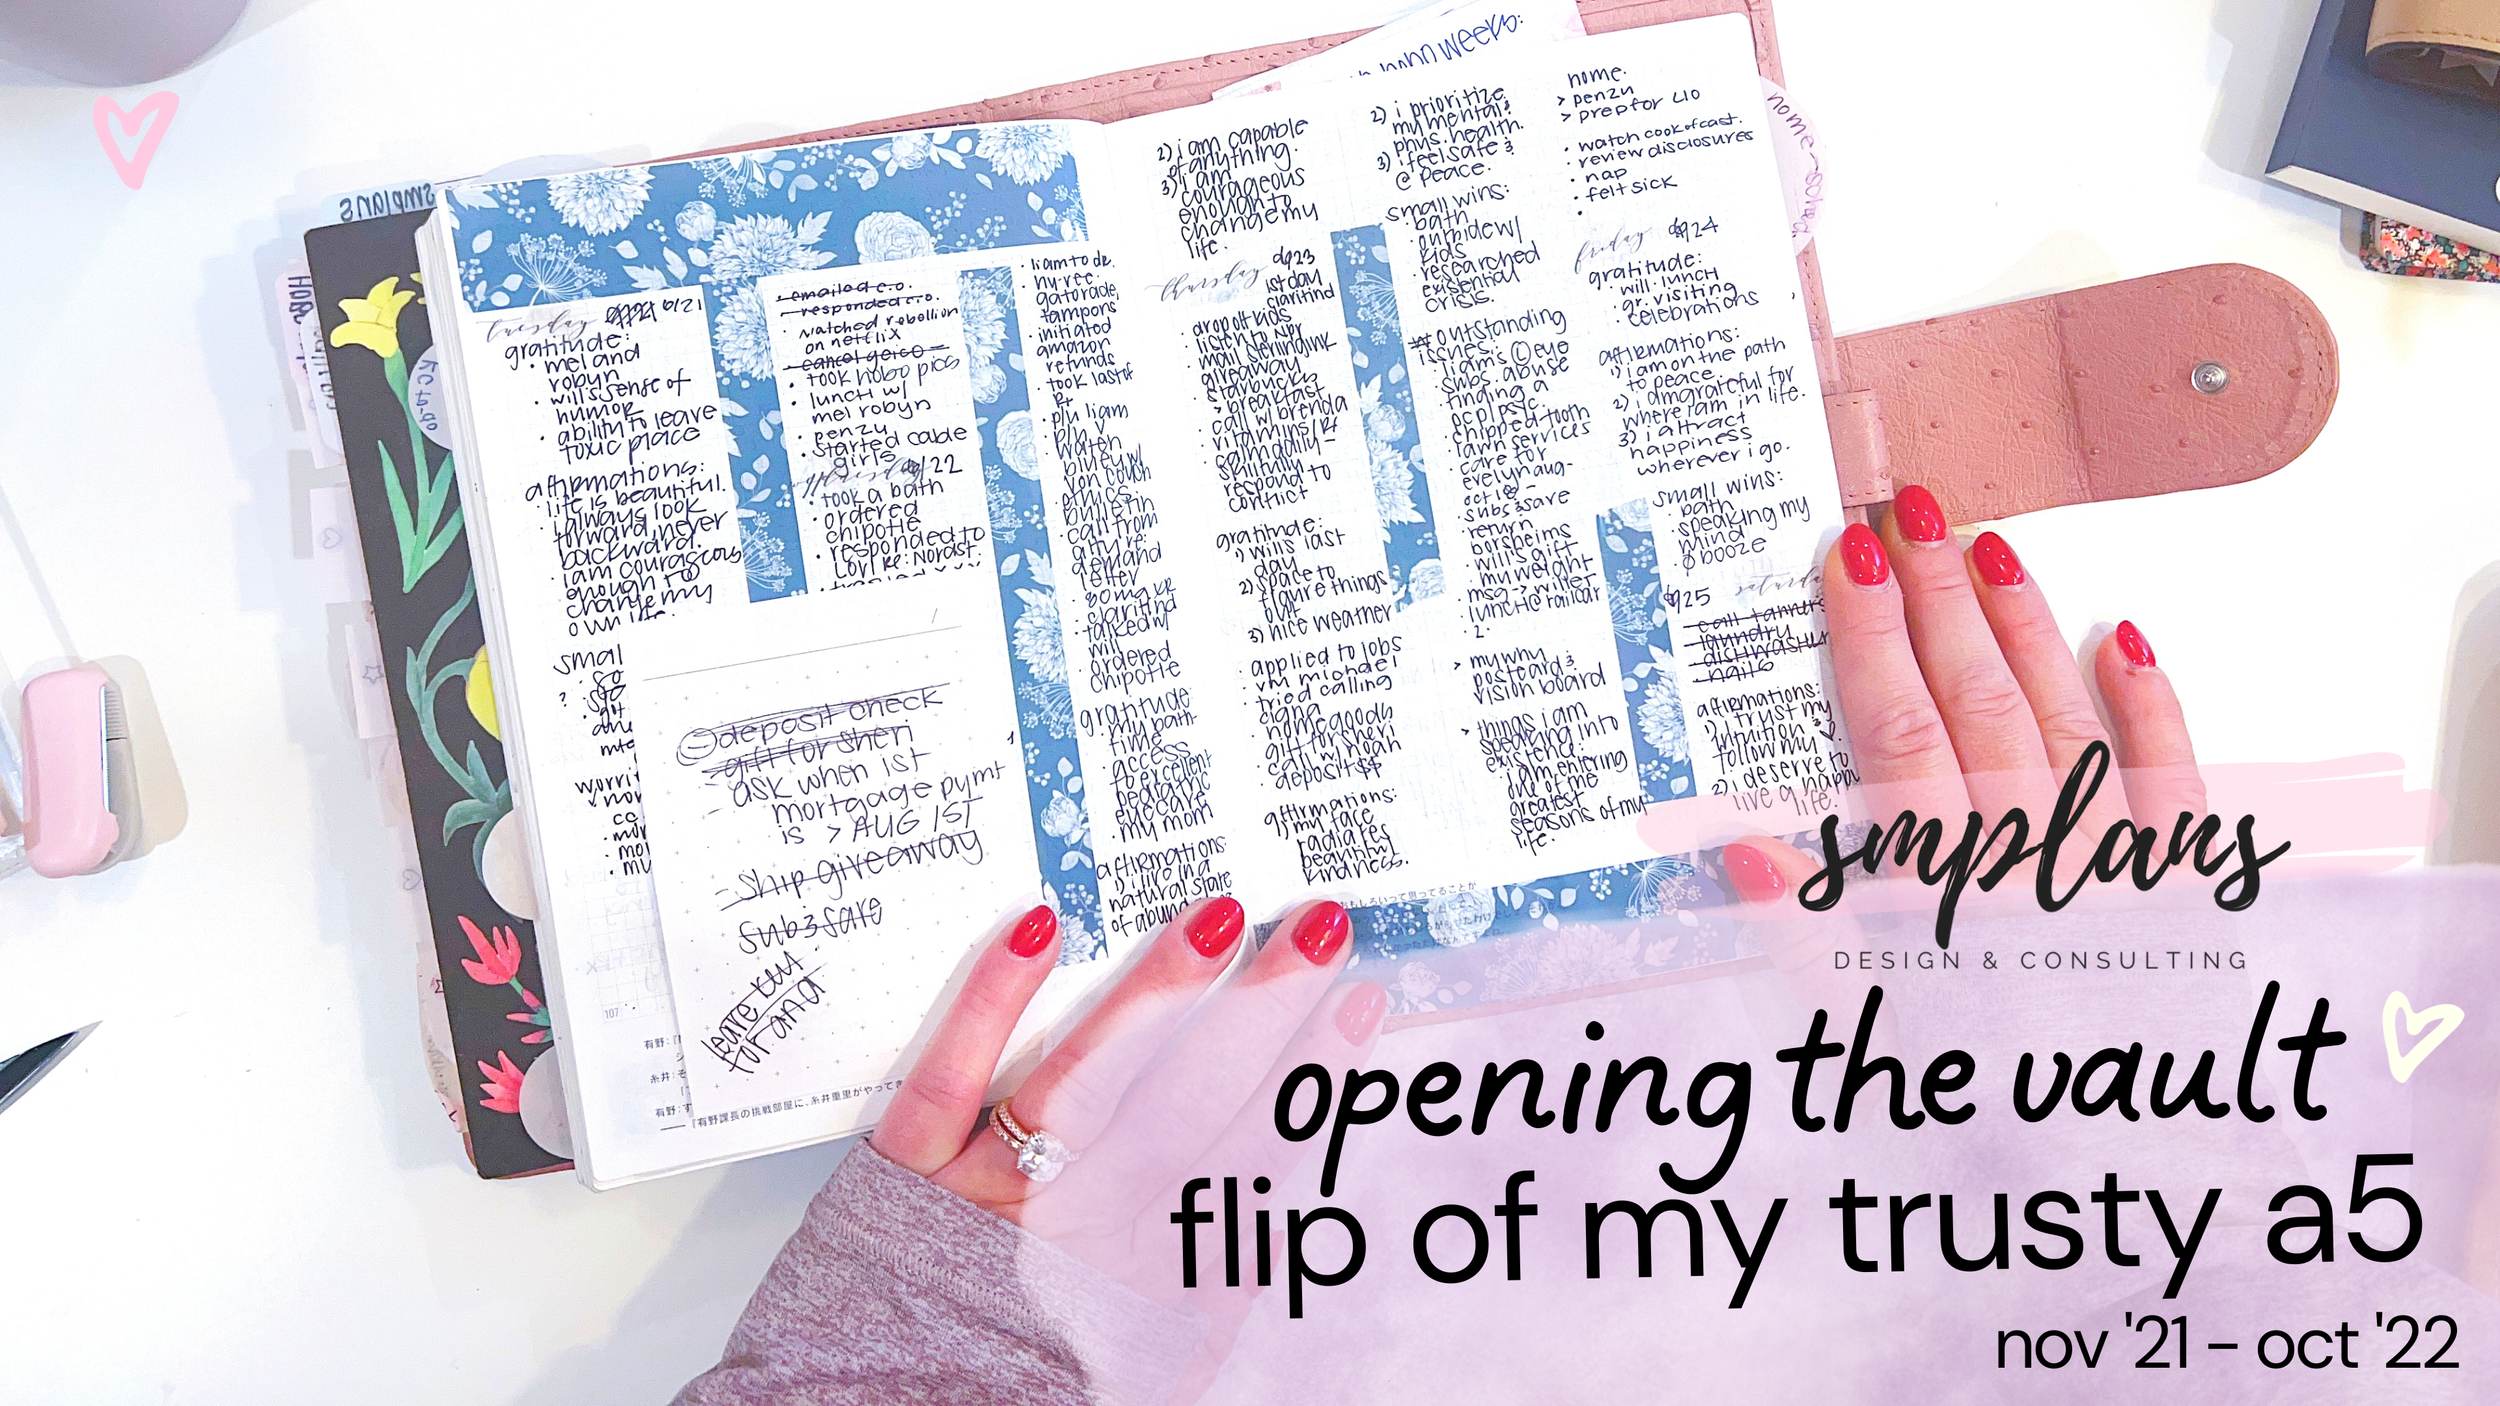 smplans
HOBO
KC to-go
tuesday 6/21
gratitude:
• mel and
robyn
• will's sense of
humor
• ability to leave
toxic place
affirmations:
• life is beautiful.
• i always look
forward, never
backward.
• i am courageous
enough to
change my
own life.
smal
107
• emailed c.o.
• responded c.o.
• watched robollion
on netflix
• cancel geico –
• took hobo pics
• lunch w/
mel robyn
• penzu
• started cable
girls
/22
• took a bath
• ordered
chipotle
• responded to
Lori re: Nordst.
deposit check
– gift for sheri
– ask when 1st
mortgage pymt
is > AUG 1ST
– ship giveaway
sub & save
leave
for ana
• liam to dr.
• hy-vee:
gatorade,
tampons
• initiated
amazon
refunds
• took last of
Rx
• p/u liam
• p/u v
• ethics
bulletin
• call from
atty re:
demand
letter
• 80mg xr
• claritind
• talked w/
will
• ordered
chipotle
gratitude:
• my bath
time
• access
to excellent
pediatric
eyecare
• my mom
affirmations:
1) i live in a
natural state
of abundance
2) i am capable
of anything.
3) i am
courageous
enough to
change my
life.
thursday 23
1st day
claritind
• drop off kids
• listen to NPR
• mail sterlingink
giveaway
• starbucks
> breakfast
• call w/ brenda
• vitamins/Rx
• calm daily –
skillfully
respond to
conflict
gratitude:
1) will's last
day
2) space to
figure things
out
3) nice weather
• applied to jobs
• vm michael
• tried calling
cigna
• homegoods
• gift for sheri
• call w/ noah
• deposit $$
affirmations:
1) my face
radiates
beautiful
kindness.
2) i prioritize
my mental &
phys. health.
3) i feel safe &
@ peace.
small wins:
• bath
• outside w/
kids
• researched
existential
crisis.
* outstanding
issues:
• liam's L eye
• subs. abuse
• finding a
pcp/psyc.
• chipped tooth
• lawn services
• care for
evelyn aug-
oct 18 –
• subs & save
• return
borsheims
• will's gift
• my weight
• msg -> willer
• lunch @ railcar
• 2.
> my why
postcard &
vision board
> things i am
speaking into
existence:
• i am entering
one of the
greatest
seasons of my
life.
home.
> penzu
> prep for L10
• watch cook of cast.
• review disclosures
• nap
• felt sick
friday 24
gratitude:
• will lunch
• gr. visiting
• celebrations
affirmations:
1) i am on the path
to peace.
2) i am grateful for
where i am in life.
3) i attract
happiness
wherever i go.
small wins:
• bath
• speaking my
mind
• Ø booze
25 saturday
– call tanners
– laundry
– dishwasher
– nails
affirmations:
1) i trust my
intuition &
follow my ♡.
2) i deserve to
live a happy
life.
smplans
DESIGN & CONSULTING
opening the vault
flip of my trusty a5
nov '21 – oct '22